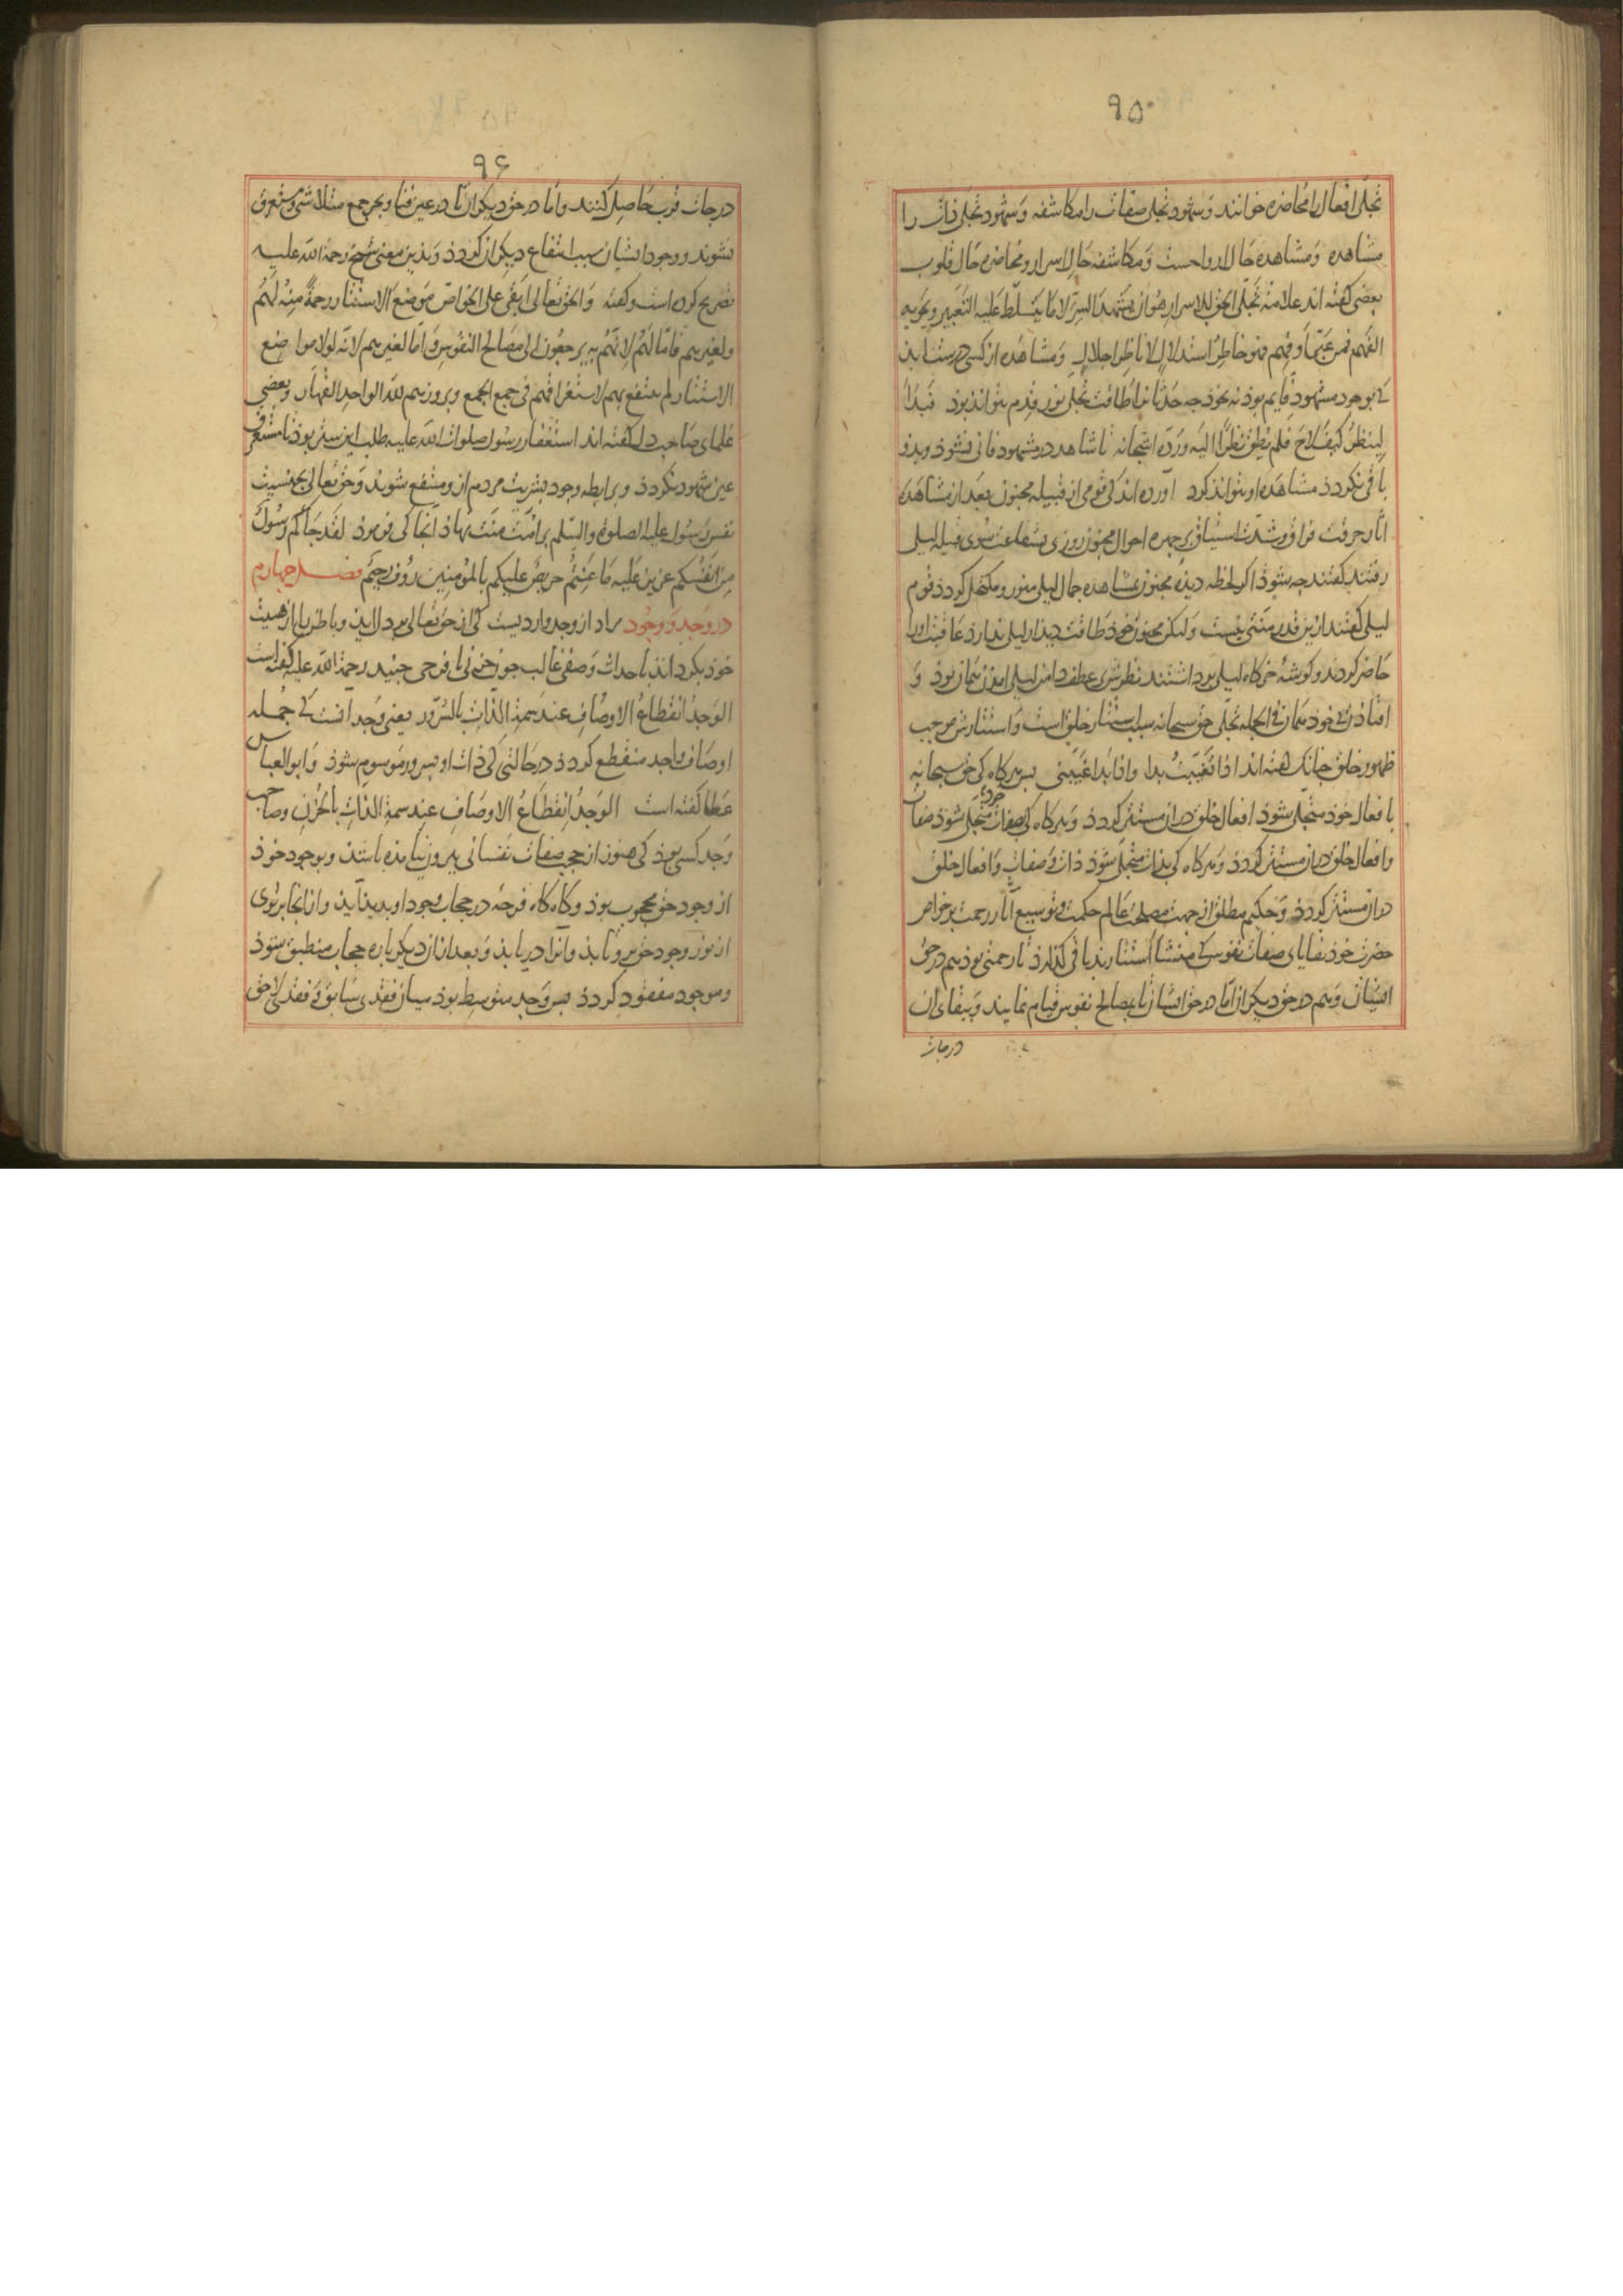 ۹۵
تجلی افعال را محاضره خوانند و شهود تجلی صفات را مکاشفه و شهود تجلی ذات را
مشاهده و مشاهده حال ارواحست و مکاشفه حال اسرار و محاضره حال قلوب
بعضی کفته اند علامة تجلی الحق للاسرار هو ان یشهد السر لا ما یتسلط علیه التعبیر و یحویه
الفهم فمن عبر او فهم فهو خاطر استدلال لا ناظر اجلال و مشاهده از کسی درست اید
کی بوجود مشهود قایم بوذ نه بخوذ جه حدثان را طاقت تجلی نور قدم نتواند بوذ فبدا
لینظر کیف لاح فلم یطق نظرا الیه ورده اشجانه تا شاهد در مشهود فانی نشوذ و بدو
باقی نکردد مشاهده او نتواند کرد اورده اند کی قومی از قبیله مجنون بعد از مشاهده
اثار حرقت فراق و شدت اشتیاق بر جهره احوال مجنون روزی بشفاعت سوی قبیله لیلی
رفتند کفتند جه شوذ اکر لحظه دیده مجنون بمشاهده جمال لیلی منور و مکتحل کردد قوم
لیلی کفتند ازین قدر منتی نیست ولیکن مجنون خود طاقت دیدار لیلی ندارد عاقبت او را
حاضر کردند و کوشه خرکاه لیلی برداشتند نظرش بر عطف دامن لیلی امدن همان بوذ و
افتاذن بی خود همان فی الجمله تجلی حق سبحانه سبب استتار خلق است و استتارش موجب
ظهور خلق جنانک کفته اند اذا تغیبت بدا واذا بدا غیبنی بس هر کاه کی حق سبحانه
بافعال خود متجلی شوذ افعال خلق در ان مستتر کردد و هر کاه کی بصفات خود متجلی شوذ صفات
و افعال خلق در ان مستتر کردد و هر کاه کی بذات متجلی شوذ ذات و صفات و افعال خلق
در ان مستتر کردد و حکیم مطلق از جهت مصلحت عالم حکمت و توسیع اثار رحمت بر خواص
حضرت خود بقایای صفات نفوس کی منشأ استتارند باقی کذارد تا رحمتی بوذ هم در حق
ایشان و هم در حق دیکران اما در حق ایشان تا بمصالح نفوس قیام نمایند و ببقای ان
درجات
۹۶
درجات قرب حاصل کنند و اما در حق دیکران تا در عین فنا و بحر جمع متلاشی و مستغرق
نشوند و وجود ایشان سبب انتفاع دیکران کردد و بدین معنی شیخ رحمة الله علیه
تصریح کرده است و کفته والحق تعالی ابقی علی الخواص موضع الاستتار رحمة منه لهم
ولغیرهم فاما لهم لانهم به یرجعون الی مصالح النفوس واما لغیرهم لانه لولا مواضع
الاستتار لم ینتفع بهم لاستغراقهم فی جمع الجمع وبروزهم لله الواحد القهار و بعضی
علمای صاحب دل کفته اند استغفار رسول صلوات الله علیه طلب این ستر بوذ تا مستغرق
عین شهود نکردد و برابطه وجود بشریت مردم از و منتفع شوند و حق تعالی بجنسیت
نفس رسول علیه الصلوة والسلم بر امت منت نهاذ انجا کی فرموذ لقد جاءکم رسول
من انفسکم عزیز علیه ما عنتم حریص علیکم بالمؤمنین رؤف رحیم فصل جهارم
در وجد و وجود مراد از وجد واردیست کی از حق تعالی بر دل اید و باطن را از هیئت
خود بکرداند باحداث وصفی غالب جون حزنی یا فرحی جنید رحمة الله علیه کفته است
الوجد انقطاع الاوصاف عند سمة الذات بالسرور یعنی وجد انست کی جمله
اوصاف واجد منقطع کردد در حالتی کی ذات او بسرور موسوم شوذ و ابو العباس
عطا کفته است الوجد انقطاع الاوصاف عند سمة الذات بالحزن و صاحب
وجد کسی بوذ کی هنوز از حجب صفات نفسانی بیرون نیامده باشد و بوجود خوذ
از وجود حق محجوب بوذ و کاه کاه فرجه در حجاب وجود او بدید اید و از انجا برتوی
از نور وجود حق برو تابد و انرا دریابد و بعد از ان دیکر باره حجاب منطبق شوذ
و موجود مفقود کردد بس وجد متوسط بوذ میان فقدی سابق و فقدی لاحق